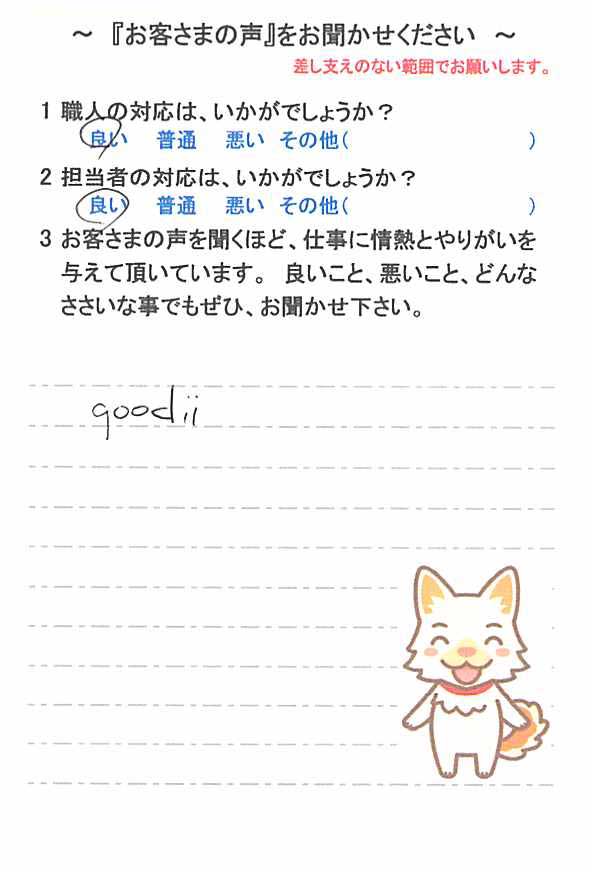 ～ 『お客さまの声』をお聞かせください ～
差し支えのない範囲でお願いします。
1 職人の対応は、いかがでしょうか？
良い 普通 悪い その他( )
2 担当者の対応は、いかがでしょうか？
良い 普通 悪い その他( )
3 お客さまの声を聞くほど、仕事に情熱とやりがいを
与えて頂いています。 良いこと、悪いこと、どんな
ささいな事でもぜひ、お聞かせ下さい。
goodii